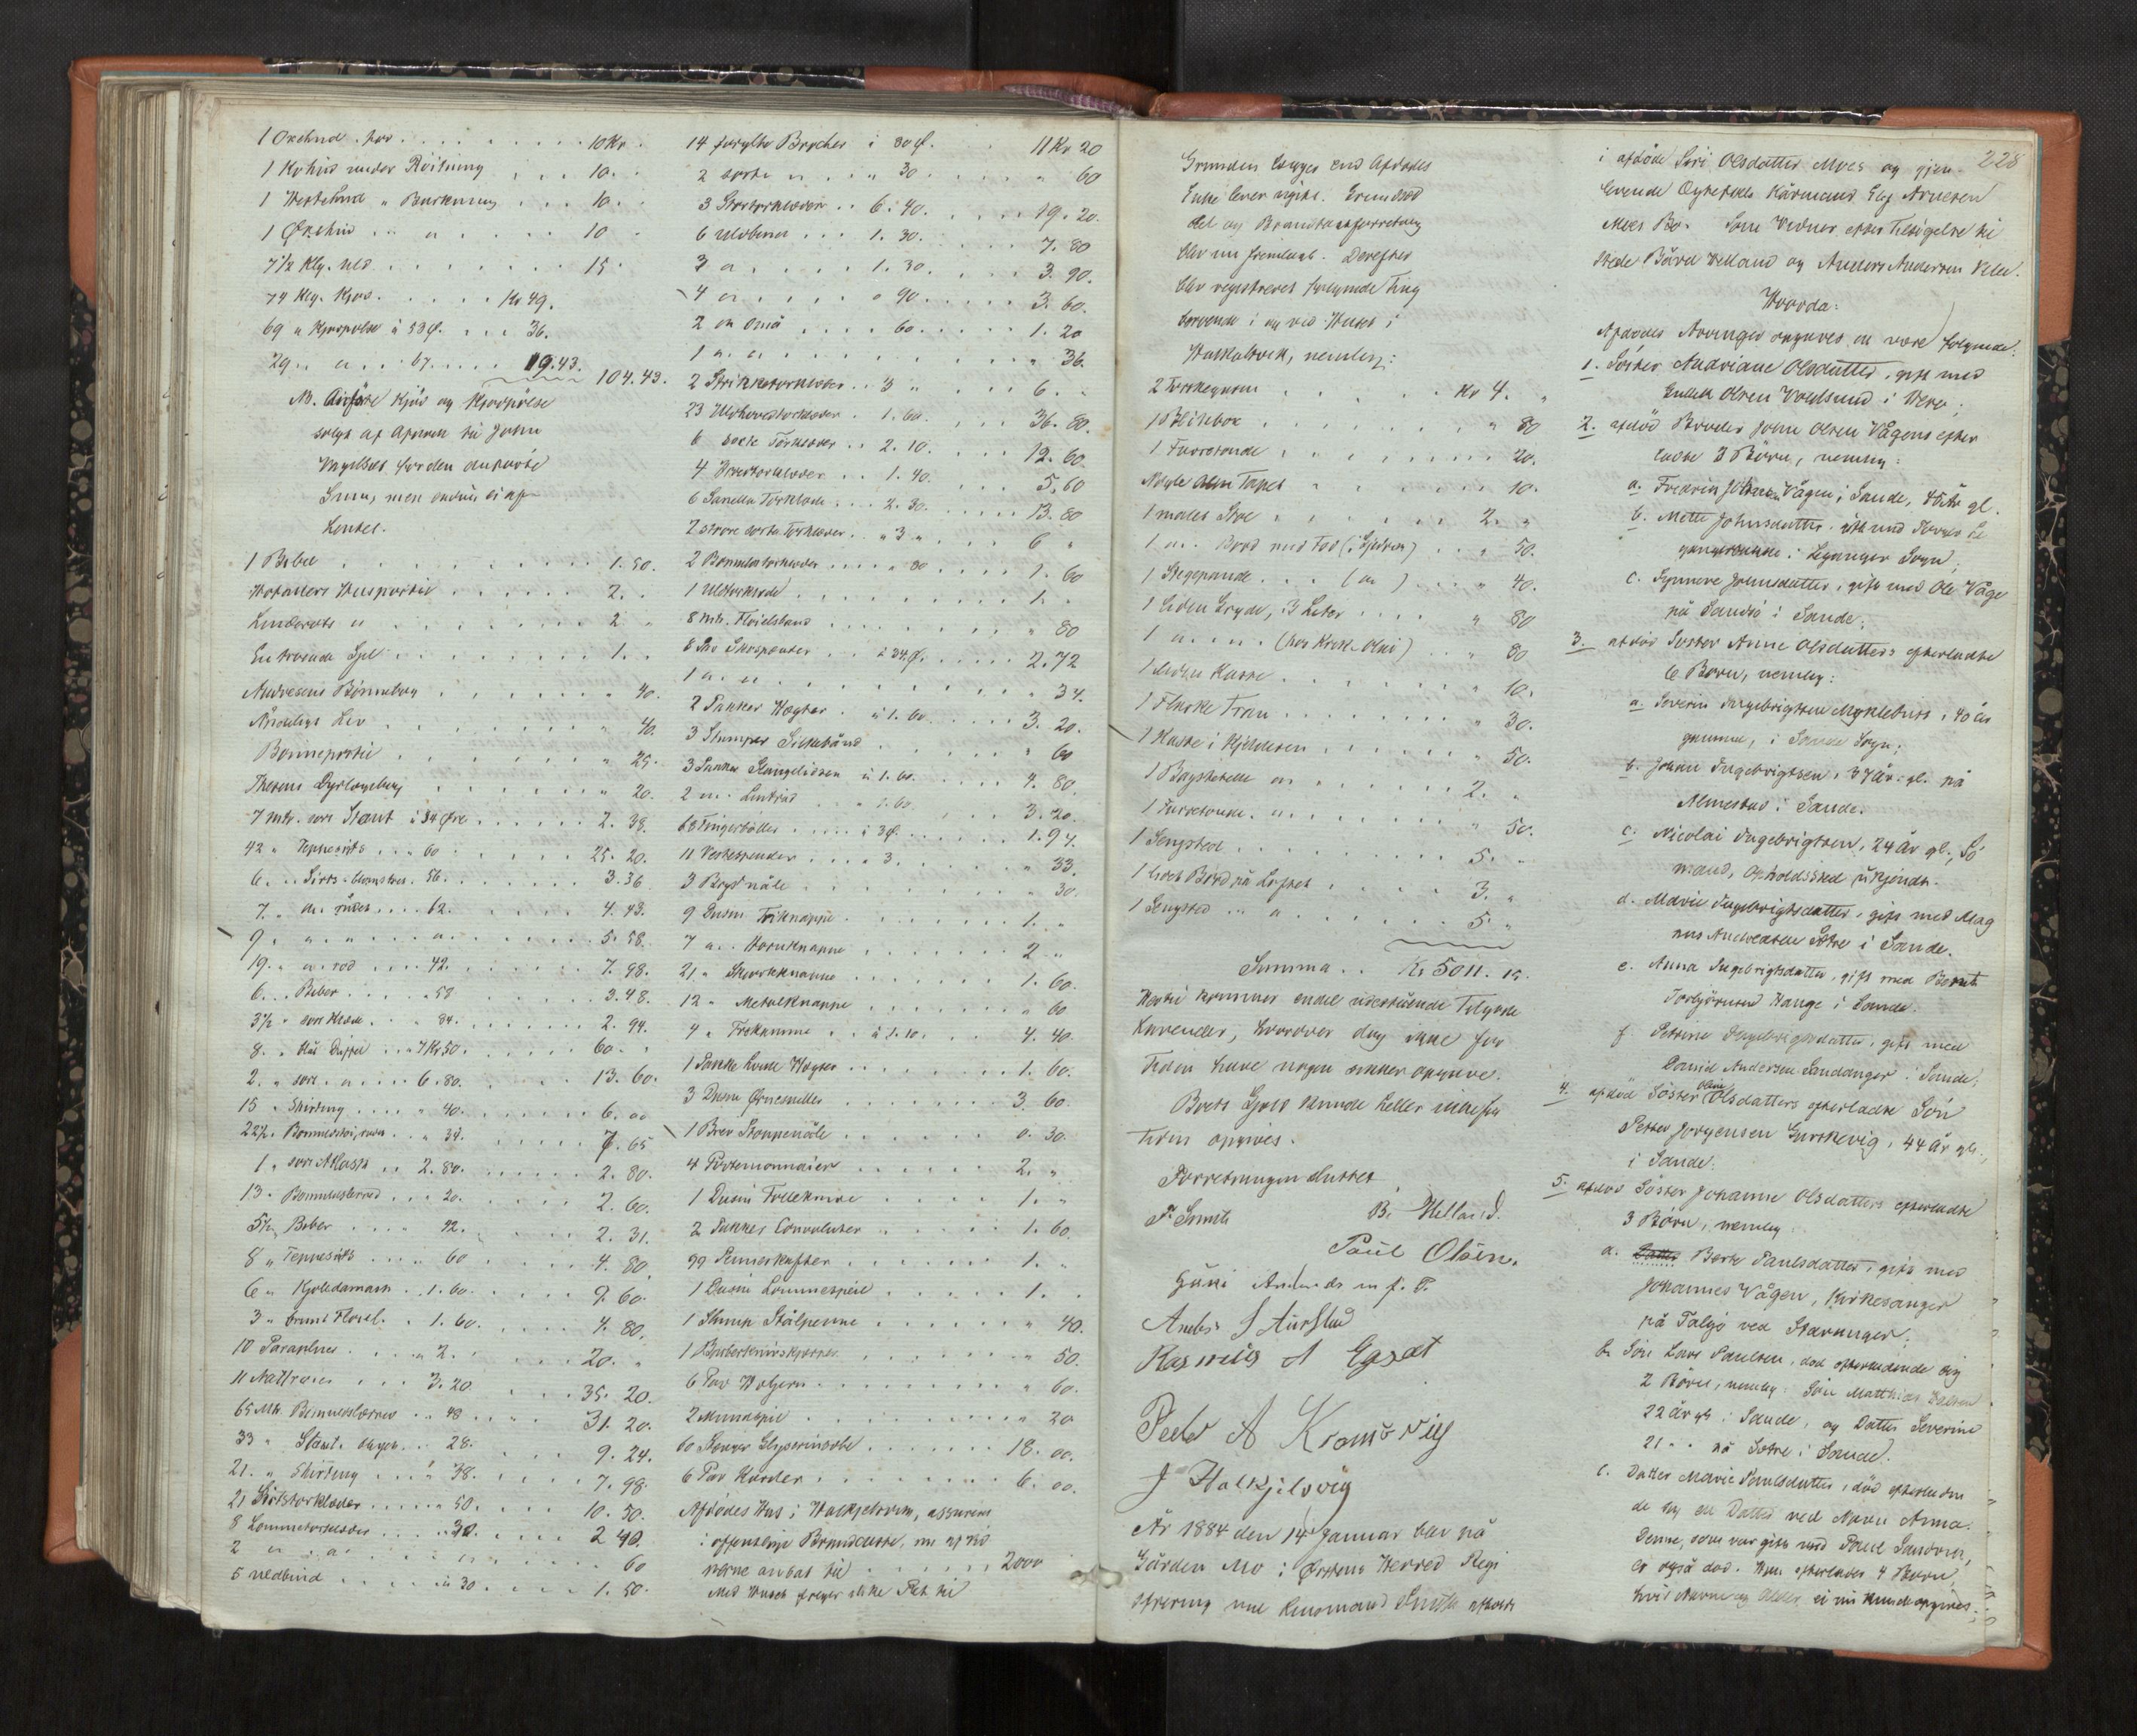 1 Oxehud . for . . . . 10 Kr.
1 Kohud under Röitning . . . 10.
1 Hestehud " Barkning . . . 10.
1 Oxehud " " . . . 10
7 1/2 Klg. Uld . . . 15.
74 Klg. Kjød . . . Kr 49.
69 " Kjødpølse à 53 Ø. . . 36.
29 " " . . 67. . . . 19.43.
104.43.
NB. Anførte Kjød og Kjødpølse
solgt af Afdøde til John
Myklebust for den anførte
Sum, men endnu ei af
hentet.
1 Bibel . . . 1.50.
Hofackers Huspostil . . . 2.
Linderots " . . . 2 "
En troende Sjel . . . 1.
Andresens Bønnebog . . . " 40.
Åndeligt Lev . . . " 40.
Bønnepostil . . . " 25.
. . . " 20.
7 Mtr. sort Stant à 34 Øre . . . 2. 38.
42 " Teppesirts . . " 60 . . . 25. 20.
6. " Sirts blomstret. 56. . . . 3.36
7. " do rudet . . . 62. . . . 4. 43.
9. " " " . . . " . . . 5. 58.
19. " " rød . . . 42. . . . 7. 98.
6. . . Biber . . . " 58 . . . 3.48.
3 1/2 " sort Klæde . . " 84. . . . 2. 94.
8. " blå Düffel . . " 7 Kr 50. . . . 60. "
2. " sort . " . . . 6. 80. . . . 13. 60.
15 " Shirting . . . " 40. . . . 6. 00
22 1/2 " Bommuldstøi, . . " 34. . . . 7. 65
1 " sort Atlask . . 2. 80. . . . 2. 80.
13 " Bommuldslerred . . " 20. . . . 2. 60.
5 1/2 Biber . . . " 42. . . . 2. 31.
8 " Teppesirts . . . " 60 . . . 4. 80
6 " Kjoledamask . . 1. 60. . . . 9. 60.
3 " brunt Flonel. " 1. 60. . . . 4. 80.
10 Paraplyer . . . " 2. . . . 20. "
11 Nattrøier . . . 3. 20 . . . 35. 20.
65 Mtr. Bommuldslærred . . " 48 . . . 31. 20.
33 " Stant. . . 28. . . . 9. 24.
21. " Shirting . . . " 38. . . . 7. 98.
21 . . . " 50. . . . 10. 50.
8 Lommetørklæder . . . " 30. . . . 2 40.
2 " " . . . " . . . 60
5 Uldbind . . . à 30. . . . 1. 50.
14 forgylte Brocher à 80 Ø. . 11 Kr 20
2 sorte " . . " 30 . . . " 60
3 Størtørklæder . . 6. 40. . . . 19. 20.
6 uldbuser . . . 1. 30. . . . 7. 80
3 " . . . 1. 30. . . . 3. 90.
4 " . . . " 90. . . . 3. 60.
2 " små . . . " 60. . . . 1. 20
1 " " . . . " 36.
2 Strikketørklæder . . 3 " . . . 6. "
23 Uldhovedtørklæder . 1. 60. . . . 36. 80.
6 sorte Tørklæder . . 2. 10. . . . 12. 60.
4 Tørklæder . . . 1. 40. . . . 5. 60
6 Sanella Tørklæde . . . 2. 30. . . . 13. 80
2 store sorte Tørklæder . . " 3 " . . . 6 "
2 Bomuldstørklæder . . . " 80 . . . 1. 60
1 Uldtørklæde . . . 1. "
8 Mtr. Fløielsbånd . . . " 80
8 Par Skospænder . . à 34 Ø. . . . 2. 72
1 " " . . . " 34.
2 Pakker Hægter . à 1. 60. . . . 3. 20.
3 Stumper Silkebånd . . . " 60
3 Pakker à 1. 60. . . . 4. 80.
2 " Lintråd . . " 1. 60 . . . 3. 20.
68 Fingerbøller . . . à 3 Ø. . . . 1. 94.
11 Vestespænder . . . " 3. . . . " 33.
3 Brev nåle . . . " 30.
9 Dusin Træknappe . . . 1. "
7 " " Hornknappe . . . 2 "
21 " Skjorteknappe . . . 1. 60.
12 " Metalknappe . . . " 60
4 " Træknappe . . à 1. 10. . . . 4. 40.
1 Pakke hvide Hægter . . . 1. 60.
3 Dusin Ørnesmeller . . . 3. 60
1 Brev Stoppenåle . . . 0. 30.
4 Portemonnaier . . . 2. "
1 Dusin . . . 1. "
2 Pakker Convoluter " . . . 1. 60.
99 Penneskafter . . . 1. "
1 Dusin Lommespeil . . . 1. "
1 Stump Stålpenne . . . " 40.
1 . . . " 50.
6 Par Halsjern . . . " 60.
2 Mundspil . . . " 20
60 Stenger Glyserinsæbe . . . 18. 00.
6 Par Karder . . . 6. 00.
Afdødes Hus i Halkjelsvik, assureret
i offentlige Brandcasse, nu af Vid
nerne ansat til . . . 2000
Med Huset følger slike Ret til
Grunden længe end Afdødes
Enke lever ugift. Grundsed
del og Brandtaxtforretning
blev nu fremlagt. Derefter
blev registreret følgende Ting
beroende i og ved Huset i
Halkelsvik, nemlig:
2 Torskegarn . . . Kr 4. "
1 Blikbox . . . " 80
1 Furretønde . . . " 20.
Nogle alen Tapet . . . " 10.
1 malet Stol . . . 2. "
1 " . Bord med Fod (i Kjelderen) . . " 50.
1 Stegepande . . . ( " ) . . . " 40.
1 liden Gryde, 3 Liter . . . " 80
1 " . . . " (hos Knut Olai) . . " 80
1 liden Kasse . . . " 10.
1 Flaske Tran . . . " 30.
1 Kasse i Kjelderen . . . " 50.
1 Bagstehelle " . . . 2. "
1 Furretønde. " . . . " 50.
1 Sengsted . . . 5. "
1 lidet Bord på Loftet . . . 3. "
1 Sengsted . . " . . . 5. "
Summa . . Kr 5011. 19.
Hertil kommer endel udestående Tilgode
havender, hvorover dog ikke for
Tiden have nogen sikker opgave.
Boets Gjeld kunde heller ikke for
tiden opgives.
Forretningen sluttet
P. Smith B. Helland.
Paul Olsen.
Guri Amunds m. f. P.
Anders J Aurstad
Rasmus A Egset
Peder A Kramsvig
J Halkjelsvig
År 1884 den 14 Januar blev på
Gården Mo i Ørstens Herred Regi
strering ved Lensmand Smith afholdt
228
i afdøde Siri Olsdatter Moes og gjen
levende Ægtefelle Kårmand Elg Arnesen
Moes Bo. Som Vidner efter Tilsigelse til
stede Bård Velland og Anders Andersen Velle.
Hvorda:
Afdødes Arvinger opgaves at være følgende:
1. Søster Andriane Olsdatter, gift med
Gullik Olsen Voldsund i Herø;
2. afdød Broder John Olsen Vågens efter
ladte 3 Børn, nemlig:
a. Fredrik Johnsen Vågen i Sande, 45 år gl.
b. Mette Johnsdatter, gift med
i Leganger Sogn;
c. Synneve Johnsdatter, gift med Ole Våge
på Sandsø i Sande;
3. afdød Søster Anne Olsdatters efterladte
6 Børn, nemlig:
a. Severin Ingebrigtsen Myklebust, 40 år
gammel, i Sande Sogn;
b. Johan Ingebrigtsen, 37 år gl. på
Almestad i Sande.
c. Nicolai Ingebrigtsen, 24 år gl., Sø
mand, Opholdssted ukjendt.
d. Marie Ingebrigtsdatter, gift med Mag
nus Andreasen Sætre i Sande.
e. Anna Ingebrigtsdatter, gift med Bernt
Torbjørnsen Hauge i Sande.
f. Petrine Ingebrigtsdatter, gift med
Daniel Andersen Sandanger i Sande;
4. afdød Søster Oline Olsdatters efterladte Søn
Petter Jørgensen Gurskevig, 44 år gl.,
i Sande.
5. afdød Søster Johanne Olsdatters efterladte
3 Børn, nemlig
a. Datter Berte Paulsdatter, gift med
Johannes Vågen, Kirkesanger
på Talgø ved Stavanger;
b. Søn Lars Paulsen, død efterladende sig
2 Børn, nemlig: Søn Matthias Larsen
22 år gl. i Sande, og Datter Severine
21 " " på Sætre i Sande.
c. Datter Marie Paulsdatter, død efterladen
de sig en Datter ved Navn Anna.
Denne, som var gift med Paul Sandvik,
er også død. Hun efterlader 4 Børn,
hvis Navne og Alder ei nu kunde opgives;